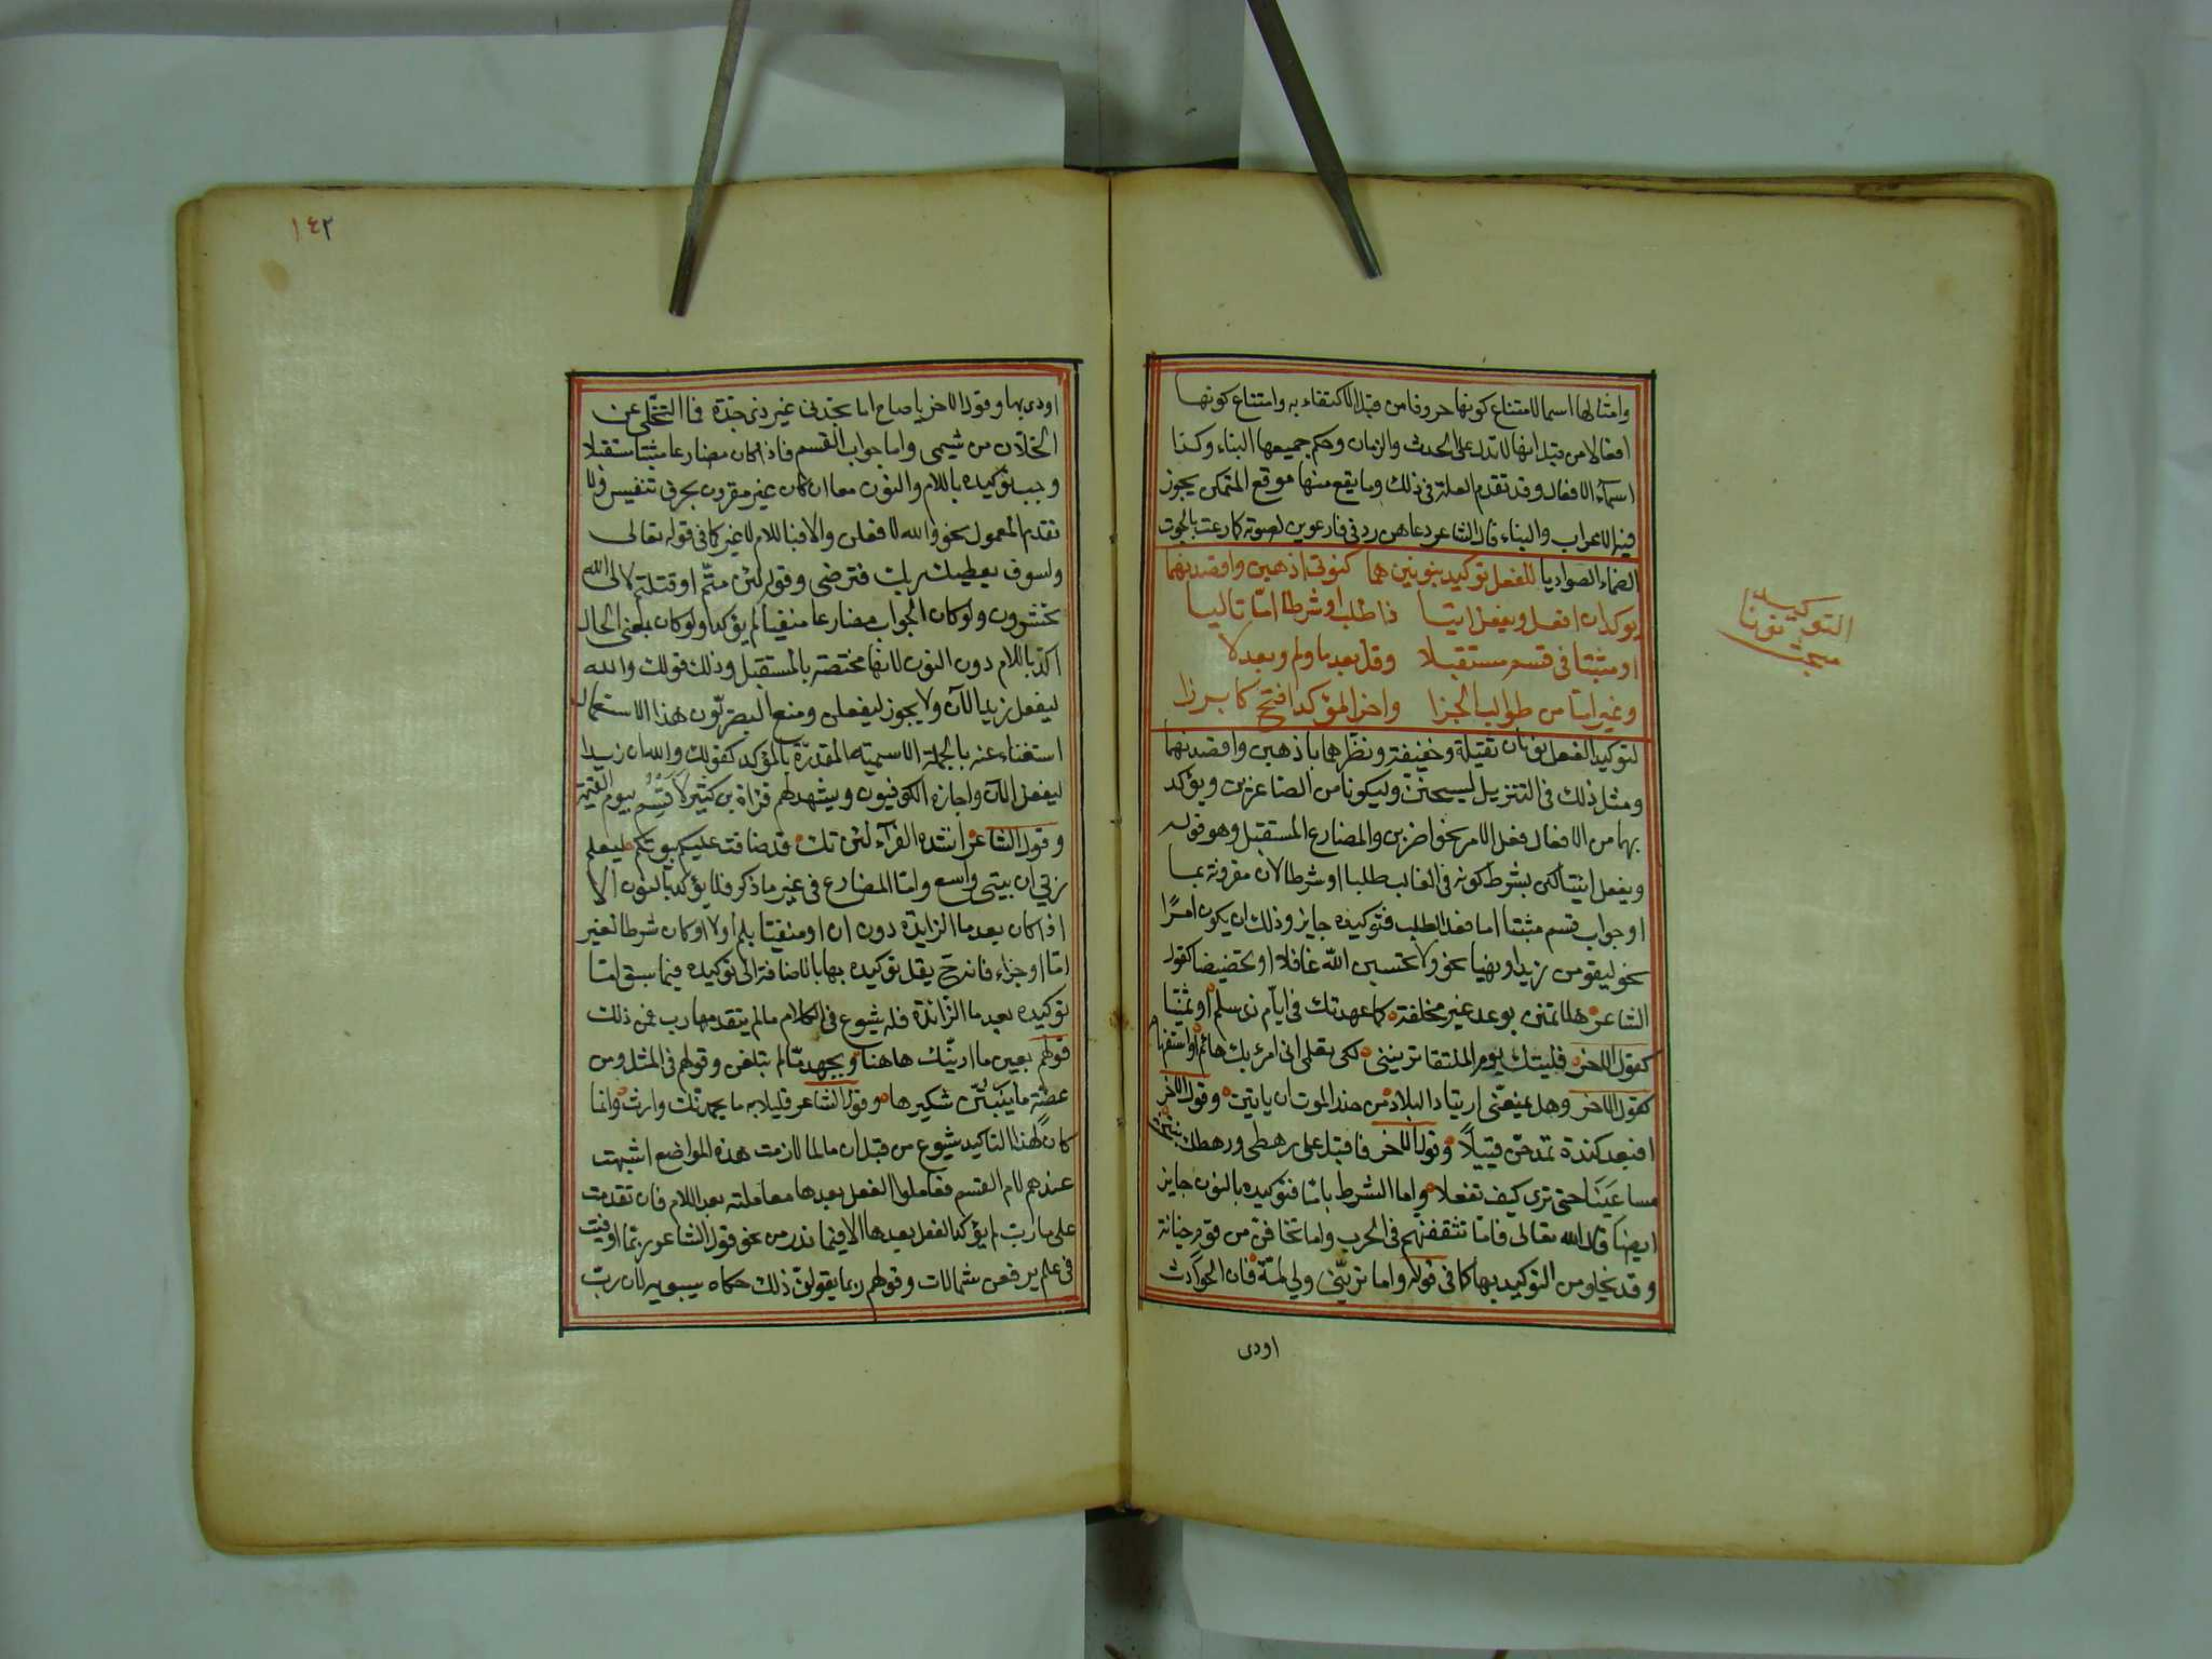 وامثالها اسما لامتناع كونها حروفا من قبل الاكتفاء به وامتناع كونها
افعالا من قبل انها لا تدل على الحدث والزمان وحكم جميعها البناء وكذا
اسمآء الافعال وقد تقدم العلة فى ذلك وما يقع منها موقع المتمكن يجوز
فيه الاعراب والبناء قال الشاعر دعاهن ردفى فارعوين لصوته كما رعت بالجوت
الضماء الصواديا للفعل توكيد بنونين هما كنونى اذهبن واقصدنهما
يوكدان افعل ويفعل اتيا ذا طلب او شرطا اما تاليا
او مثبتا فى قسم مستقبلا وقل بعد ما ولم وبعد لا
وغير اما من طوالب الجزا واخر المؤكد افتح كابرزا
لتوكيد الفعل نونان ثقيلة وخفيفة ونظرهما باذهبن واقصدنهما
ومثل ذلك فى التنزيل ليسجنن وليكونا من الصاغرين ويؤكد
بهما من الافعال فعل الامر نحو اضربن والمضارع المستقبل وهو قوله
ويفعل اتيا لكى بشرط كونه فى الغالب طلبا او شرطا لان مقرونة بما
او جواب قسم مثبتا اما فعل الطلب فتوكيده جايز وذلك ان يكون امرًا
نحو ليقومن زيد او نهيا نحو ولا تحسبن الله غافلا او تحضيضا كقول
الشاعر هلا تمنن بوعد غير مخلفة كما عهدتك فى ايّام ذى سلم او تمنّيا
كقول الاخر فليتك يوم الملتقا ترينني لكى تعلمى انى امرؤ بك هائم او استفهاما
كقول الاخر وهل يمنعنى ارتياد البلاد من حذر الموت ان ياتين وقول الاخر
افبعد كندة تمدحن قبيلاً وقول الاخر فاقبل على رهطى ورهطك نبتحث
مساعينا حتى ترى كيف تفعلا واما الشرط باما فتوكيده بالنون جايز
ايضا كما قال الله تعالى فامّا تثقفنهم فى الحرب واما تخافن من قوم خيانة
وقد يخلو من التوكيد بها كما فى قوله واما ترينى ولي لمة فان الحوادث
اودى
التوكيد
نونا
مبحث
١٤٢
اودى بها وقول الاخر يا صاح اما تجدنى غير ذى جدة فما التخلى عن
الخلان من شيمى واما جواب القسم فاذا كان مضارعا مثبتا مستقبلا
وجب توكيده باللام والنون معا ان كان غير مقرون بحرف تنفيس ولا
تقدم المعمول نحو والله لافعلن والا فباللام لا غير كما فى قوله تعالى
ولسوف يعطيك ربك فترضى وقوله لئن متم او قتلتم لالى الله
تحشرون ولو كان الجواب مضارعا منفيا لم يؤكد ولو كان بمعنى الحال
اكد باللام دون النون لانها مختصة بالمستقبل وذلك قولك والله
ليفعل زيد الآن ولا يجوز ليفعلن ومنع البصريّون هذا الاستعمال
استغناء عنه بالجملة الاسمية المقدرة بالمؤكد كقولك والله ان زيدا
ليفعل الآن واجازه الكوفيون ويشهد لهم قراة بن كثير لأقسم بيوم القيمة
وقول الشاعر انشده الفرآء لئن تك قد ضاقت عليكم بيوتكم ليعلم
ربي ان بيتى واسع وامّا المضارع فى غير ما ذكر فلا يؤكد بالنون الا
اذا كان بعد ما الزايدة دون ان او منفيا بلم او لا او كان شرطا لغير
امّا او جزاء فانه ح يقل توكيده بها بالاضافة الى توكيده فيما سبق امّا
توكيده بعد ما الزائدة فله شيوع فى الكلام ما لم يتقدمها رب فمن ذلك
قولهم بعين ما ارينّك هاهنا وبجهد ما لم تبلغن وقولهم فى المثل ومن
عضة ما ينبتنّ شكيرها وقول الشاعر قليلا به ما يحمدنك وارث وانما
كان لهذا التاكيد شيوع من قبل ان ما لما لازمت هذه المواضع اشبهت
عندهم لام القسم فعاملوا الفعل بعدها معاملته بعد اللام فان تقدمت
على ما رب لم يؤكد الفعل بعدها الا فيما ندر من نحو قول الشاعر ربما اوفيت
فى علم يرفعن شمالات وقولهم ربما يقولن ذلك حكاه سيبويه لان ربّ